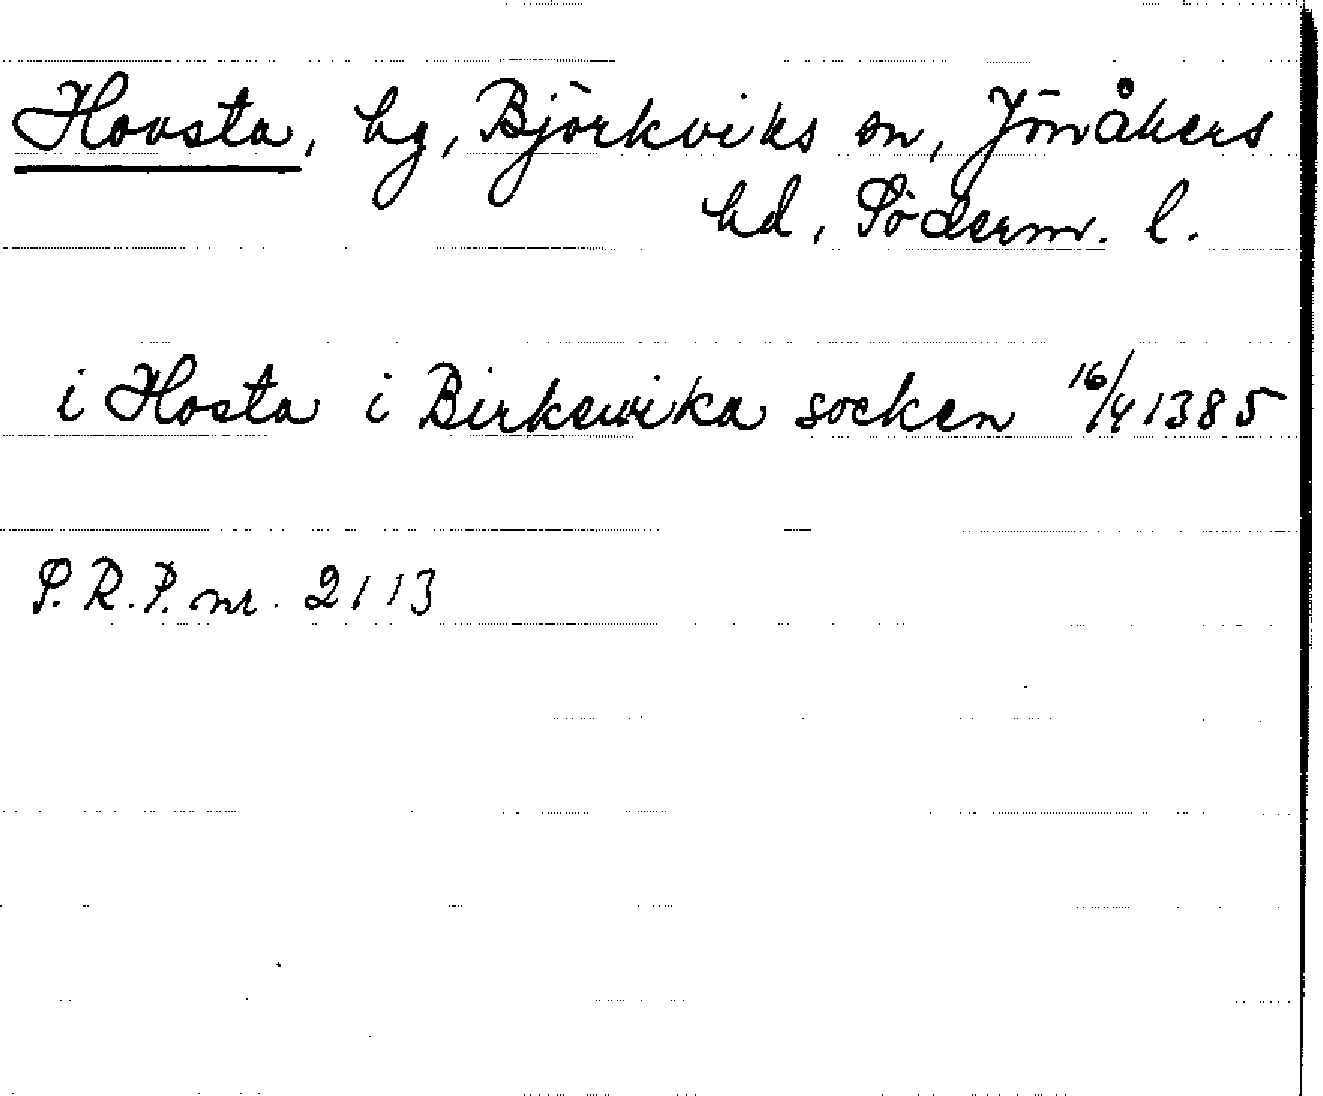 Hovsta, hg, Björkviks sn, Jönåkers
hd, Söderm. l.
i Hosta i Birkewika socken 16/4 1385
S.R.P. nr. 2113